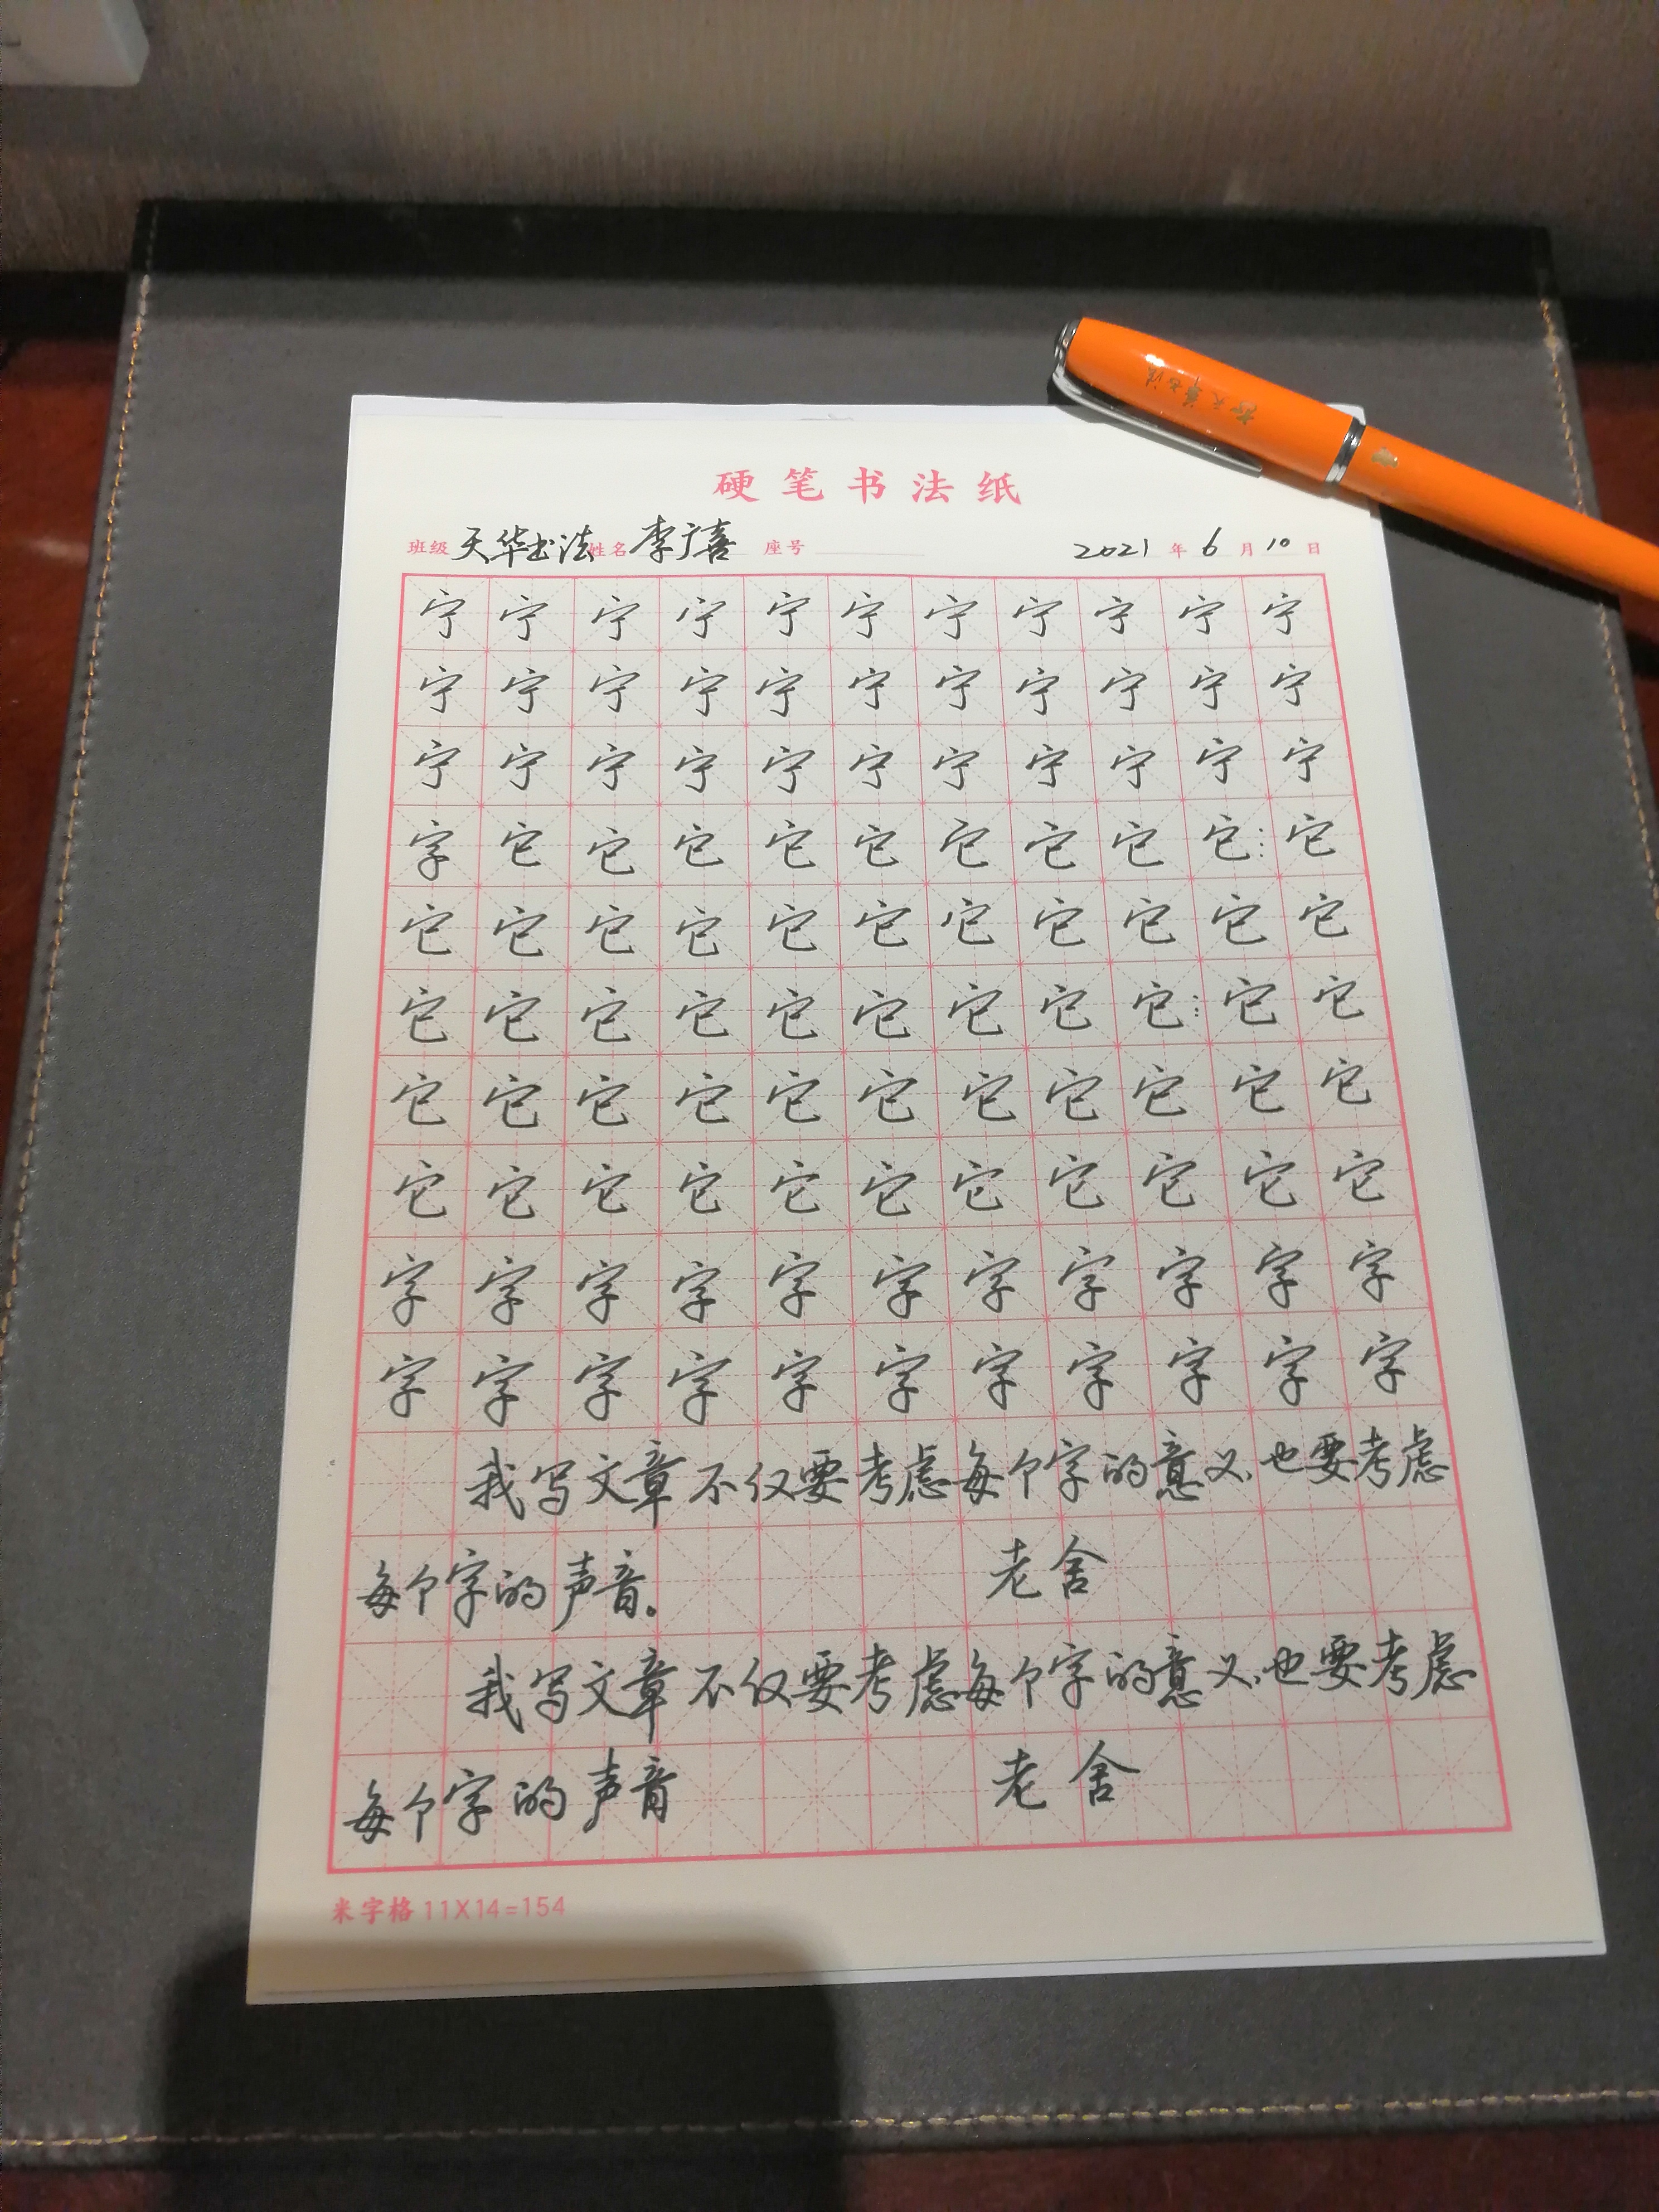 硬笔书法纸
班级 天华书法 姓名 李广喜 座号 2021 年 6 月 10 日
宁 宁 宁 宁 宁 宁 宁 宁 宁 宁 宁
宁 宁 宁 宁 宁 宁 宁 宁 宁 宁 宁
宁 宁 宁 宁 宁 宁 宁 宁 宁 宁 宁
字 它 它 它 它 它 它 它 它 它 它
它 它 它 它 它 它 它 它 它 它 它
它 它 它 它 它 它 它 它 它 它 它
它 它 它 它 它 它 它 它 它 它 它
它 它 它 它 它 它 它 它 它 它 它
字 字 字 字 字 字 字 字 字 字 字
字 字 字 字 字 字 字 字 字 字 字
我写文章不仅要考虑每个字的意义,也要考虑
每个字的声音。 老舍
我写文章不仅要考虑每个字的意义,也要考虑
每个字的声音 老舍
米字格 11X14=154